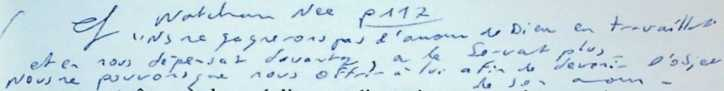 cf Watchman Nee p 117
"Ns ne gagnerons pas l'amour de Dieu en travaillant
et en nous dépensant davantage, a le Servait plus -
Nous ne pouvons que nous offrir à lui afin de devenir l'objet
de son amour -